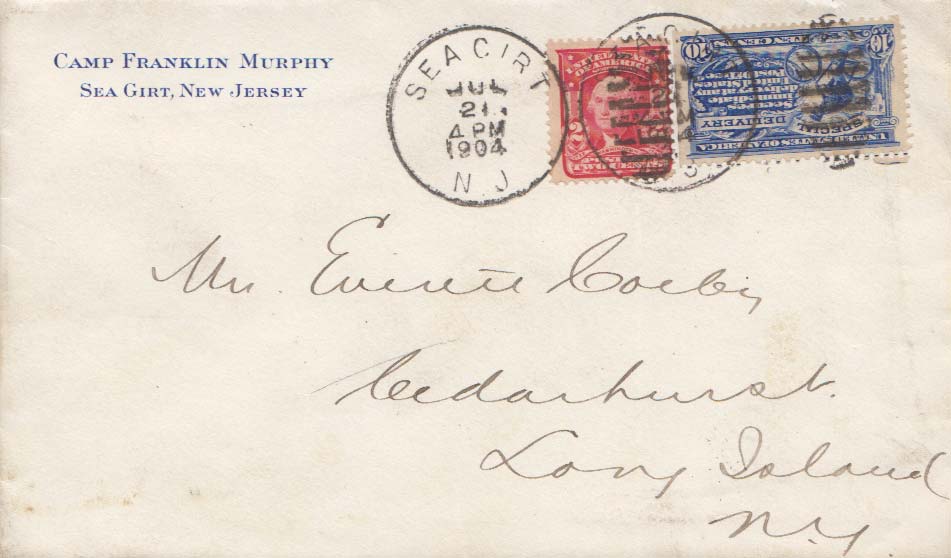 CAMP FRANKLIN MURPHY
SEA GIRT, NEW JERSEY
SEA GIRT
JUL
21
4 PM
1904
N J
UNITED STATES OF AMERICA
2
10 TEN CENTS 10
SPECIAL
DELIVERY
UNITED STATES OF AMERICA
Mr. Everett Colby
Cedarhurst.
Long Island
N.Y.